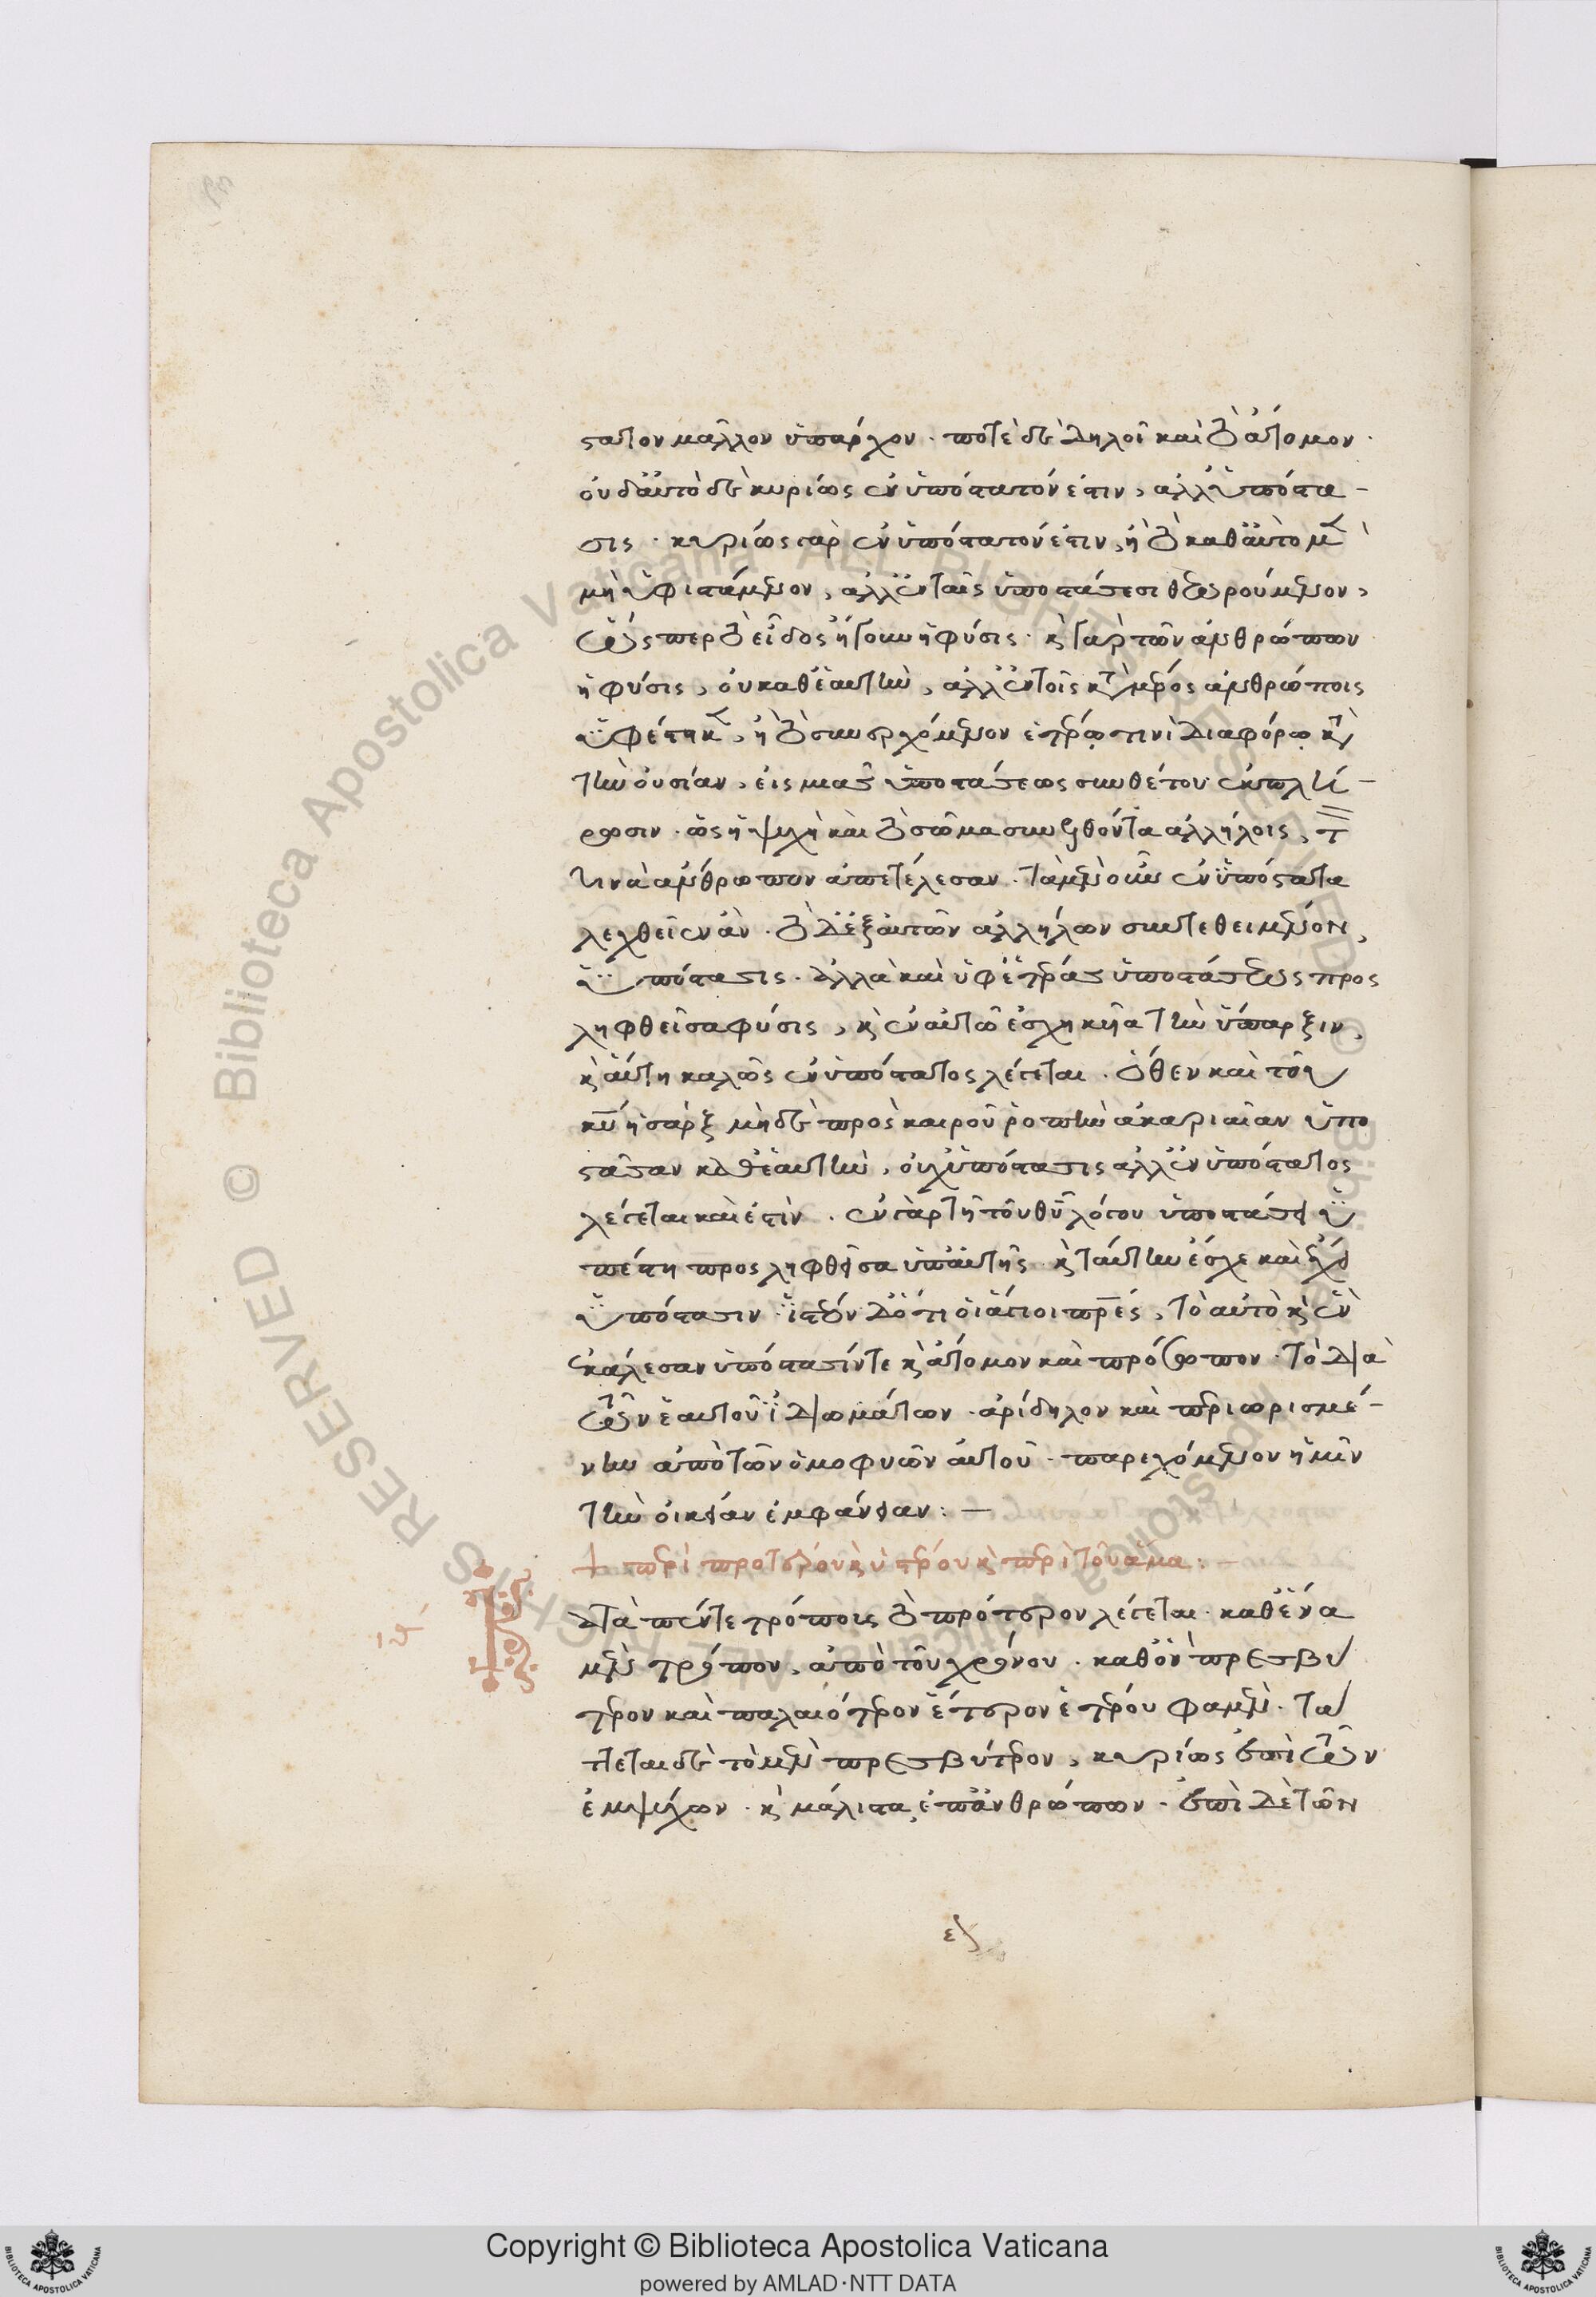 στατον μᾶλλον ὑπάρχον· ποτὲ δὲ δηλοῖ καὶ τὸ ἄτομον·
οὐδ' αὐτὸ δὲ κυρίως ἐνυπόστατόν ἐστιν, ἀλλ' ὑπόστα-
σις· κυρίως γὰρ ἐνυπόστατόν ἐστιν, ἢ τὸ καθ' αὑτὸ μὲν
μὴ ὑφιστάμενον, ἀλλ' ἐν ταῖς ὑποστάσεσι θεωρούμενον,
ὥσπερ τὸ εἶδος ἤγουν ἡ φύσις· κ τῶν ἀνθρώπων
ἡ φύσις, οὐ καθ' ἑαυτὴν, ἀλλ' ἐν τοῖς κατὰ μέρος ἀνθρώποις
ὑφέστηκεν, ἢ τὸ συνερχόμενον ἑτέρῳ τινὶ διαφόρῳ κατὰ
τὴν οὐσίαν, εἰς μιᾶς ὑποστάσεως συνθέτου ἐκπλή-
ρωσιν· ὡς ἡ ψυχὴ καὶ τὸ σῶμα συνελθόντα ἀλλήλοις, τ
τινὰ ἄνθρωπον ἀπετέλεσαν· τὰ μὲν οὖν ἐνυπόστατα
λεχθεῖεν ἂν· τὸ δ' ἐξ αὐτῶν ἀλλήλων συντεθειμένον,
ὑπόστασις· ἀλλὰ καὶ ὑφ' ἑτέρας ὑποστάσεως προσ
ληφθεῖσα φύσις, κ ἐν αὐτῷ ἐσχηκυῖα τὴν ὕπαρξιν,
κ αὕτη καλῶς ἐνυπόστατος λέγεται· ὅθεν καὶ τοῦ
κυ ἡ σὰρξ μηδὲ πρὸς καιροῦ ῥοπὴν ἀκαριαίαν ὑπο
στᾶσαν καθ' ἑαυτὴν, οὐχ ὑπόστασις ἀλλ' ἐνυπόστατος
λέγεται καὶ ἐστὶν· ἐν γὰρ τῇ τοῦ θυ λόγου ὑποστάσει ὑ
πέστη προσληφθεῖσα ὑπ' αὐτῆς· κ ταύτην ἔσχε καὶ ἔχει
ὑπόστασιν· ἰστέον δὲ ὅτι οἱ ἅγιοι πρες, τὸ αὐτὸ κ ἓν
ἐκάλεσαν ὑπόστασίν τε κ ἄτομον καὶ πρόσωπον· τὸ διὰ
τῶν ἑαυτοῦ ἰδιωμάτων· ἀρίδηλον καὶ περιωρισμέ-
νην ἀπὸ τῶν ὁμοφυῶν αὐτοῦ· παρεχόμενον ἡμῖν
τὴν οἰκείαν ἐμφάνειαν:—
+ περὶ προτέρου κ ὑστέρου κ περὶ τοῦ ἅμα:—
ιθ΄ Κατὰ πέντε τρόπους τὸ πρότερον λέγεται· καθ' ἕνα
μὲν τρόπον, ἀπὸ τοῦ χρόνου· καθ' ὃν πρεσβύ
τερον καὶ παλαιότερον ἕτερον ἑτέρου φαμὲν· τά
ττεται δὲ τὸ μὲν πρεσβύτερον, κυρίως ἐπὶ τῶν
ἐμψύχων· κ μάλιστα ἐπ' ἀνθρώπων· ἐπὶ δὲ τῶν